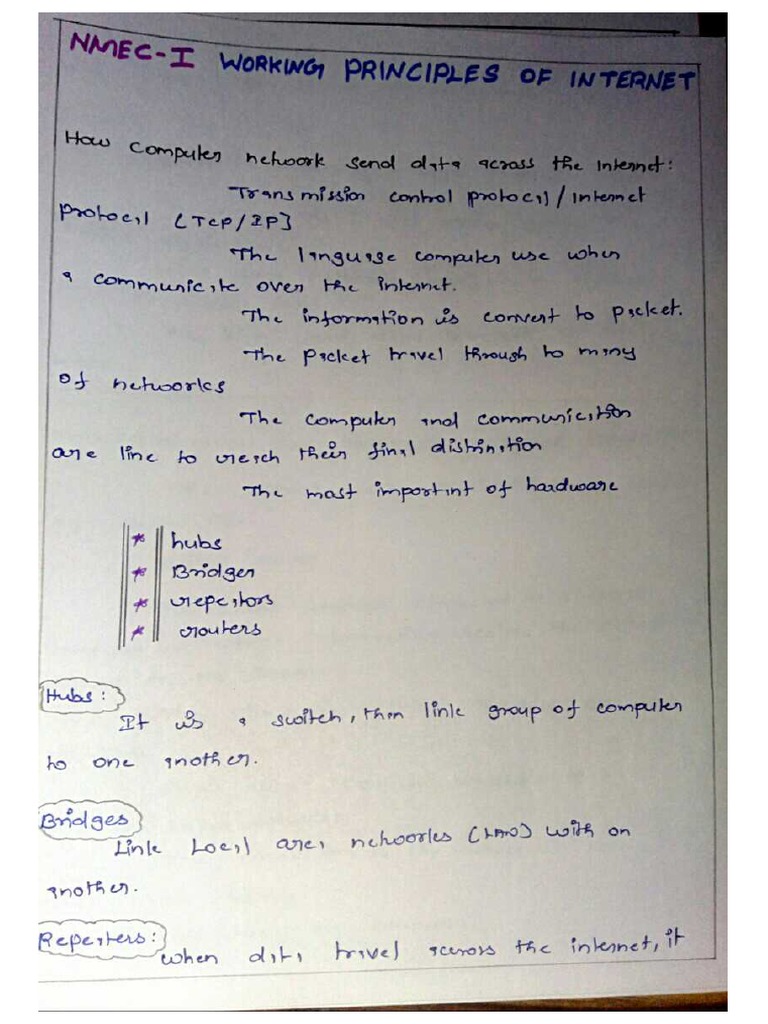 NMEC-I WORKING PRINCIPLES OF INTERNET
How Computer network send data across the internet:
Transmission control protocol/internet
protocol [TCP/IP]
The language computer use when
a communicate over the internet.
The information is convert to packet.
The packet travel through to many
of networks
The computer and communication
are line to reach their final distination
The most important of hardware
* hubs
* Bridger
* repeators
* routers
Hubs:
It is a switch, then link group of computer
to one another.
Bridges
Link Local area networks (LAN) with on
another.
Repeaters:
when data travel across the internet, it